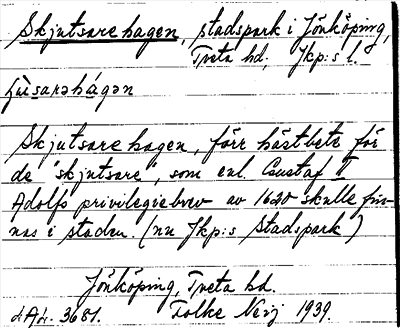 Skjutsarehagen, stadspark i Jönköping,
Tveta hd. Jkp:s l.
Skjutsarehagen, förr hästbete för
de "skjutsare", som enl. Gustaf II
Adolfs privilegiebrev av 1620 skulle fin-
nas i staden. (nu Jkp:s Stadspark)
Jönköping, Tveta hd.
3681. Folke 1939.